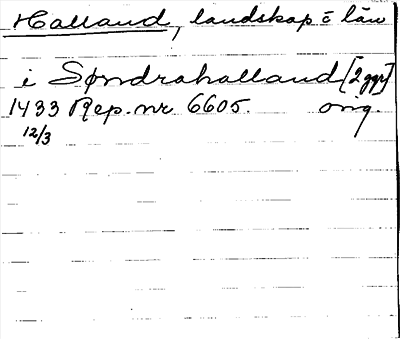 Halland, landskap o län
i Søndrahalland [2 ggr]
1433 Rep. nr 6605. orig.
12/3